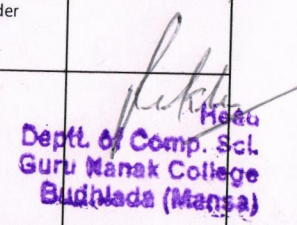 der
Head
Deptt. of Comp. Sci.
Guru Nanak College
Budhlada (Mansa)